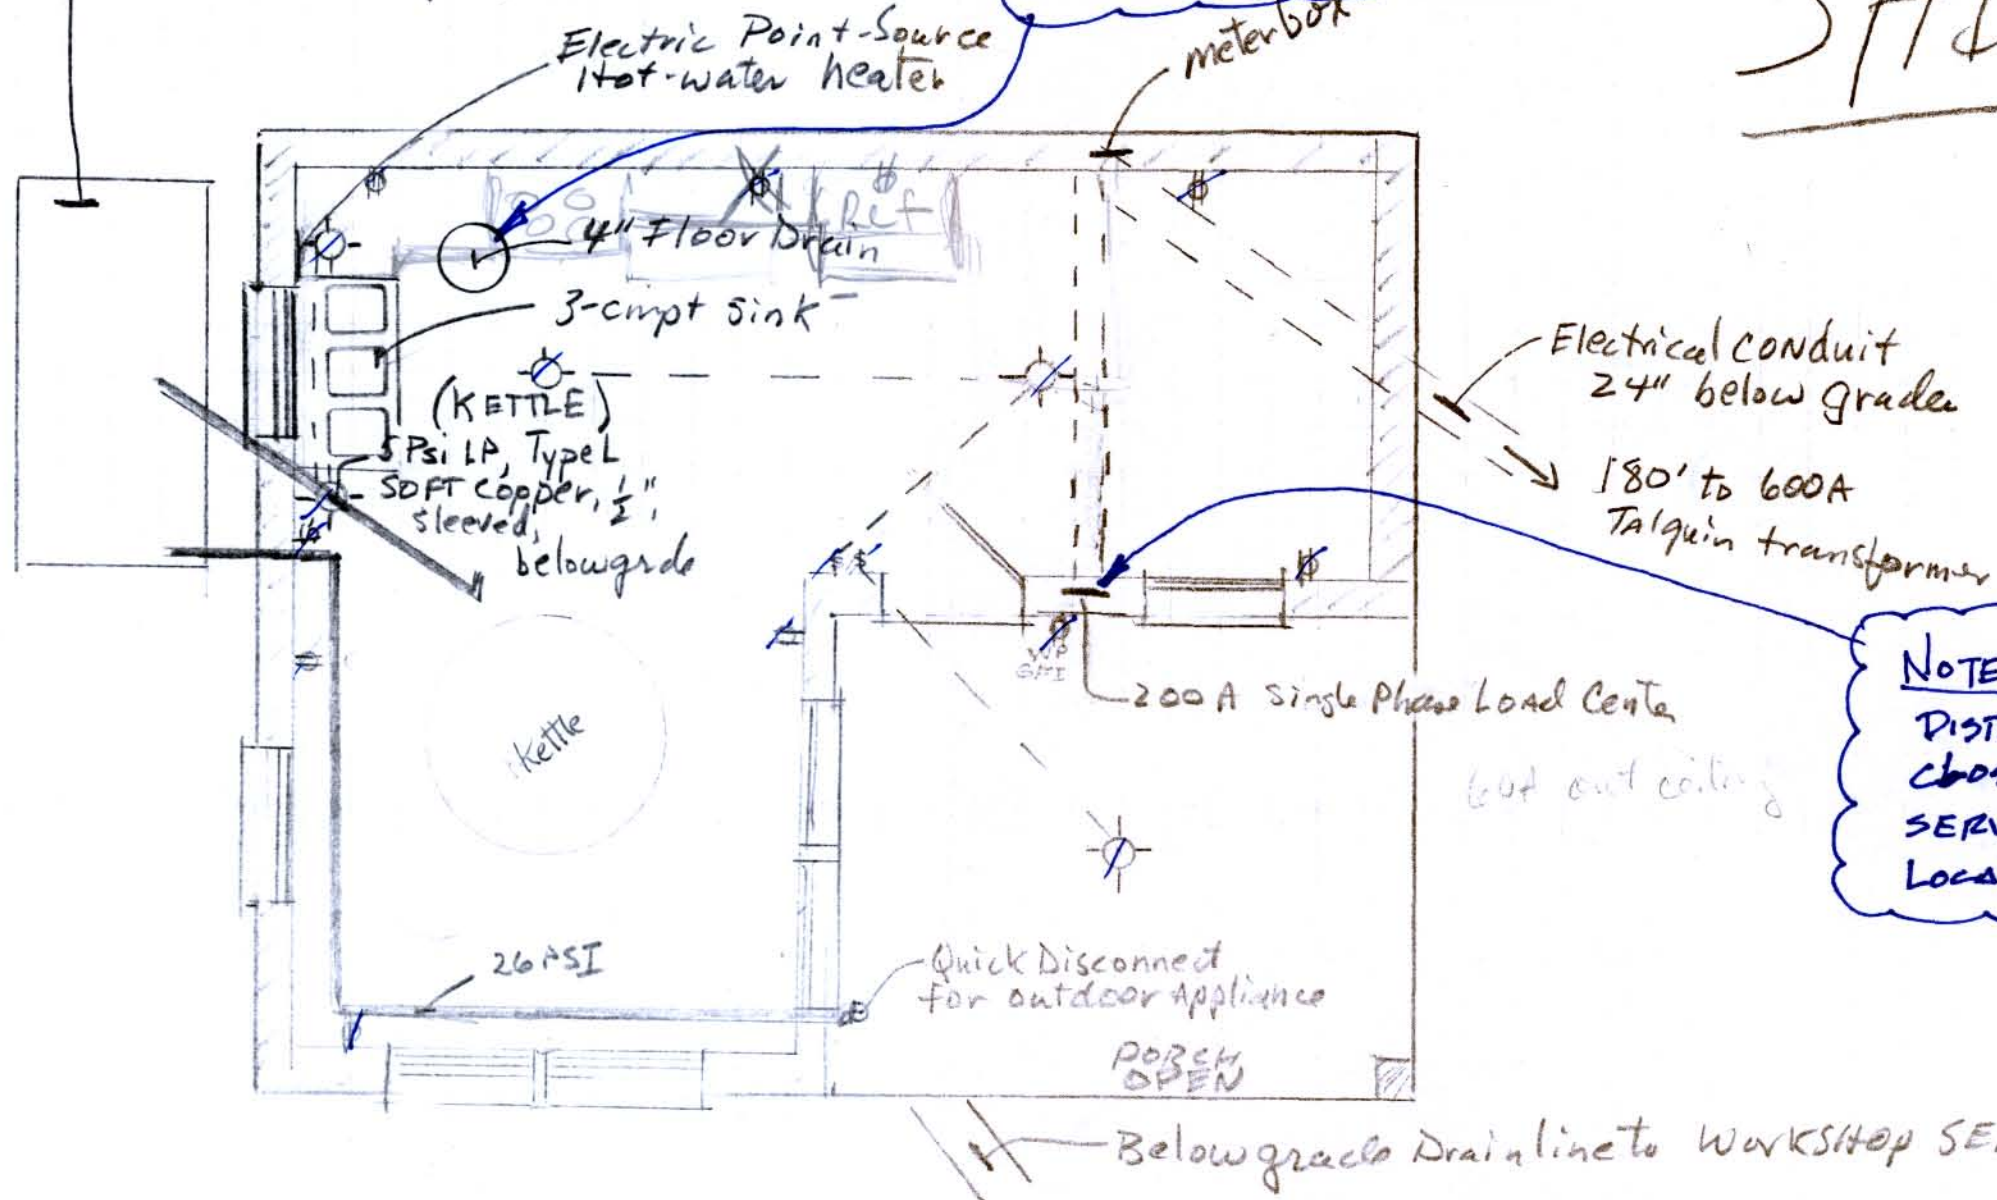 Electric Point-Source
Hot-water heater
meter box
Ref
4" Floor Drain
3-cmpt sink
(KETTLE)
5 Psi LP, Type L
SOFT Copper, 1/2",
sleeved,
belowgrde
Electrical CONduit
24" below grade
180' to 600A
Talquin transformer
WP
GFI
200 A Single Phase Load Center
NOTE
DIST
CLOS
SERV
LOCA
Kettle
cut out ceiling
26 PSI
Quick Disconnect
for outdoor Appliance
PORCH
OPEN
Below grade Drainline to WORKSHOP SE